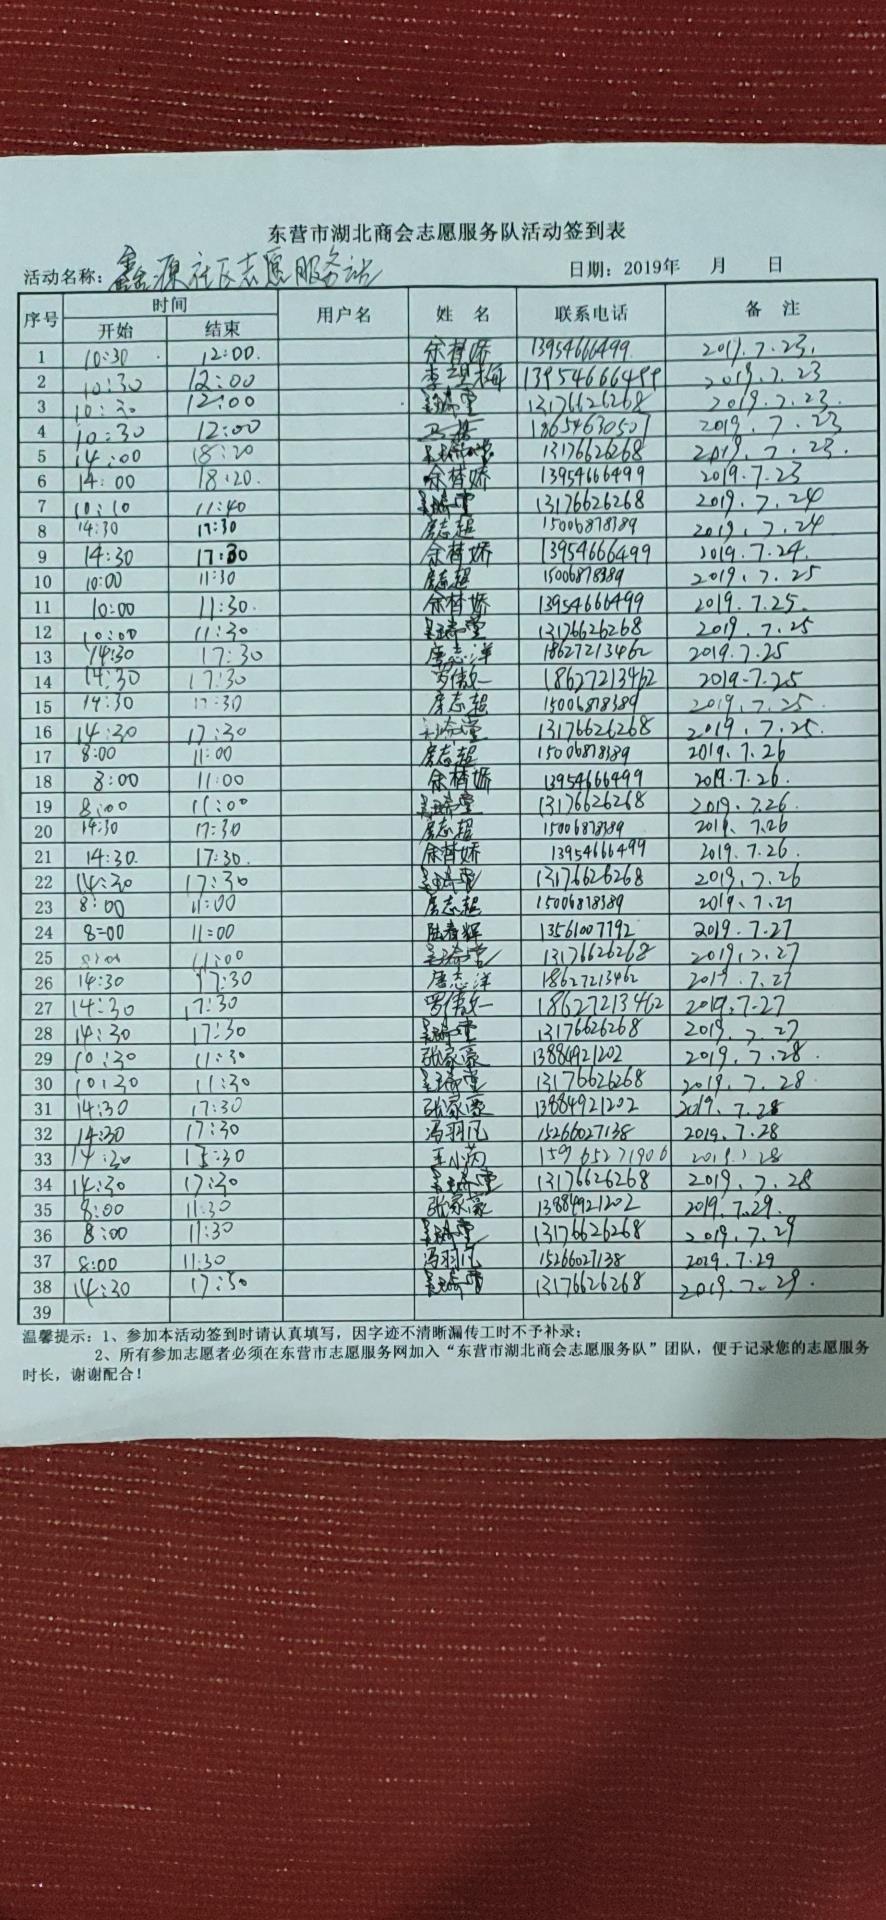 东营市湖北商会志愿服务队活动签到表
活动名称：鑫源社区志愿服务站 日期：2019年 月 日
序号 时间 用户名 姓 名 联系电话 备 注
开始 结束
1 10:30 12:00. 余 娇 13954666499 2019.7.23.
2 10:30 12:00 李 梅 13954666499 2019.7.23
3 10:30 12:00 13176626268 2019.7.23.
4 10:30 12:00 18654630507 2019.7.23
5 14:00 18:20 13176626268 2019.7.23.
6 14:00 18:20. 余 娇 13954666499 2019.7.23
7 10:10 11:40 13176626268 2019.7.24
8 14:30 17:30 唐志超 15006878389 2019.7.24
9 14:30 17:30 余 娇 13954666499 2019.7.24.
10 10:00 11:30 唐志超 15006878389 2019.7.25
11 10:00 11:30. 余 娇 13954666499 2019.7.25.
12 10:00 11:30 13176626268 2019.7.25
13 14:30 17:30 唐志洋 18627213462 2019.7.25
14 14:30 17:30 罗 18627213462 2019.7.25
15 14:30 17:30 唐志超 15006878389 2019.7.25.
16 14:30 17:30 13176626268 2019.7.25.
17 8:00 11:00 唐志超 15006878389 2019.7.26
18 8:00 11:00 余 娇 13954666499 2019.7.26.
19 8:00 11:00 13176626268 2019.7.26.
20 14:30 17:30 唐志超 15006878389 2019.7.26
21 14:30. 17:30. 余 娇 13954666499 2019.7.26.
22 14:30 17:30 13176626268 2019.7.26
23 8:00 11:00 唐志超 15006878389 2019.7.27
24 8=00 11=00 陆春辉 13561007792 2019.7.27
25 8:00 11:00 13176626268 2019.7.27
26 14:30 17:30 唐志洋 18627213462 2019.7.27
27 14:30 17:30 罗 18627213462 2019.7.27
28 14:30 17:30 13176626268 2019.7.27
29 10:30 11:30 张家豪 13884921202 2019.7.28.
30 10:30 11:30 13176626268 2019.7.28.
31 14:30 17:30 张家豪 13884921202 2019.7.28
32 14:30 17:30 冯羽凡 15266027138 2019.7.28
33 14:30 15:30 王小 15965271906 2019.7.28
34 14:30 17:30 13176626268 2019.7.28
35 8:00 11:30 张家豪 13884921202 2019.7.29.
36 8:00 11:30 13176626268 2019.7.29
37 8:00 11:30 冯羽凡 15266027138 2019.7.29
38 14:30 17:30 13176626268 2019.7.29.
39
温馨提示：1、参加本活动签到时请认真填写，因字迹不清晰漏传工时不予补录；
2、所有参加志愿者必须在东营市志愿服务网加入“东营市湖北商会志愿服务队”团队，便于记录您的志愿服务
时长，谢谢配合！